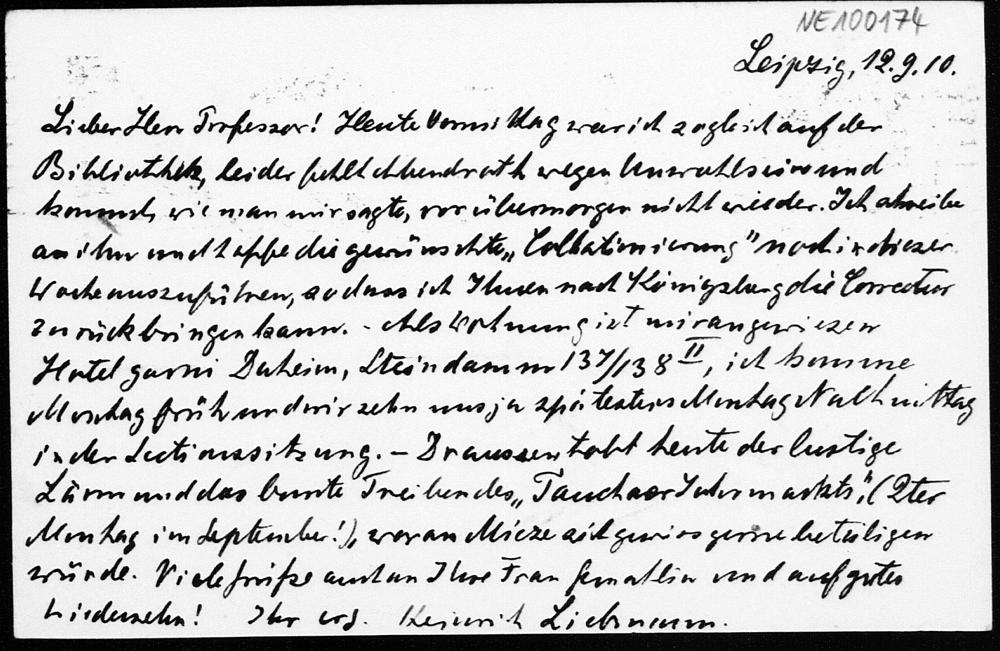 NE100174
Leipzig, 12.9.10.
Lieber Herr Professor! Heute Vormittag war ich zugleich auf der
Bibliothek, leider fehlt Abendroth wegen Unwohlsein und
kommt, wie man mir sagte, vor übermorgen nicht wieder. Ich schreibe
an ihn und hoffe die gewünschte „Collationierung" noch in dieser
Woche auszuführen, sodass ich Ihnen nach Königsberg die Correctur
zurückbringen kann. - Als Wohnung ist mir angewiesen
Hotel garni Daheim, Steindamm 137/138 II, ich komme
Montag früh und wir sehn uns ja spätestens Montag Nachmittag
in der Sectionssitzung. - Draussen tobt heute der lustige
Lärm und das bunte Treiben des „Tauchaer Jahrmarkts", (2ter
Montag im September!), woran Mieze sich gewiss gerne beteiligen
würde. Viele Grüße auch an Ihre Frau Gemahlin und auf gutes
Wiedersehn! Ihr erg. Heinrich Liebmann.